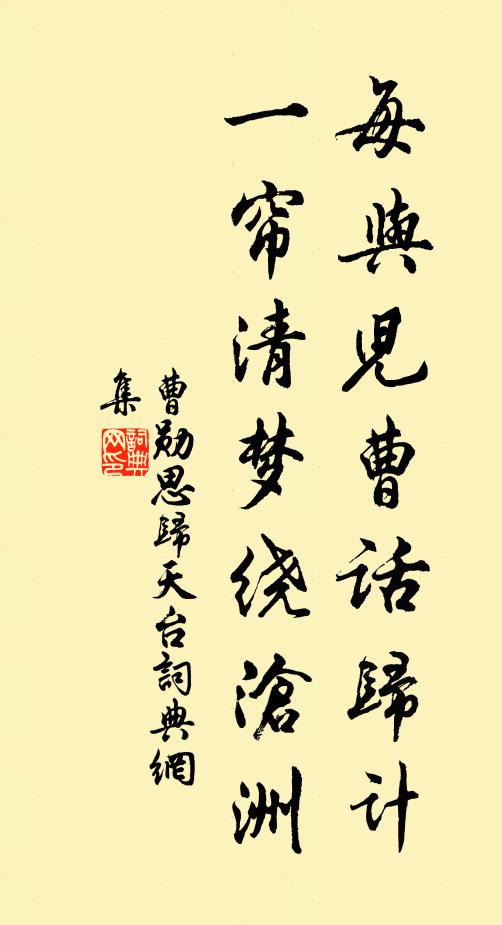 每與児曹话歸计
一帘清梦绕滄洲
曹勋思歸天台詞典網
集
詞典网印